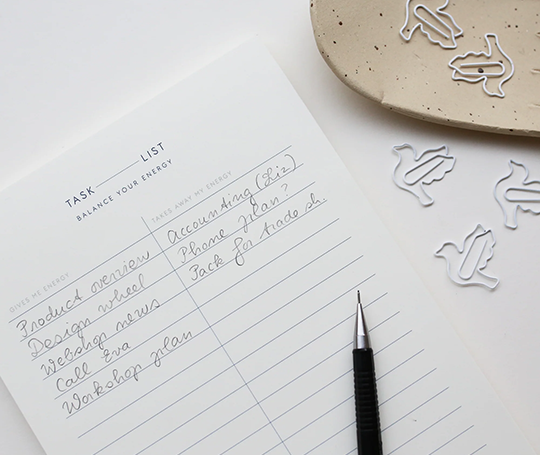 TASK LIST
BALANCE YOUR ENERGY
GIVES ME ENERGY
Product overview
Design wheel
Webshop news
Call Eva
Workshop plan
TAKES AWAY MY ENERGY
Accounting (Liz)
Phone plan?
Pack for trade sh.